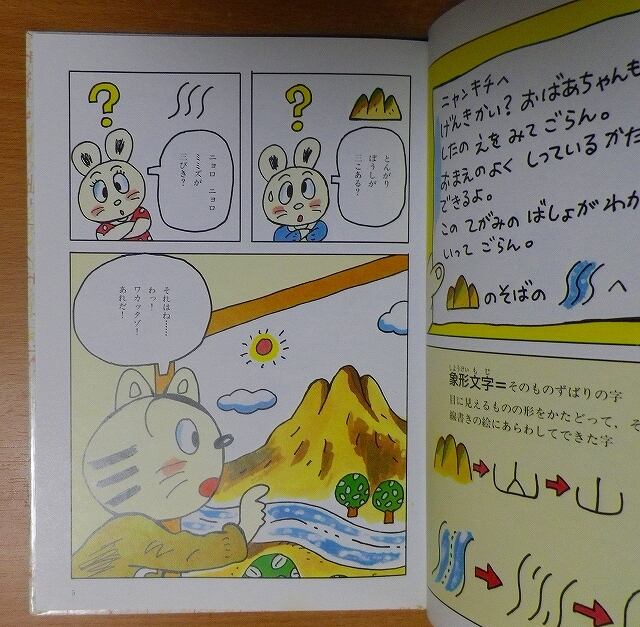 ?
とんがり
ぼうしが
三こある?
?
ニョロ ニョロ
ミミズが
三びき?
それはね……
わっ!
ワカッタゾ!
あれだ!
ニャンキチへ
げんきかい? おばあちゃんも
したの えを みて ごらん。
おまえの よく しっている かた
できるよ。
この てがみの ばしょが わか
いって ごらん。
のそばの へ
しょうけい も じ
象形文字=そのものずばりの字
目に見えるものの形をかたどって、そ
線書きの絵にあらわしてできた字